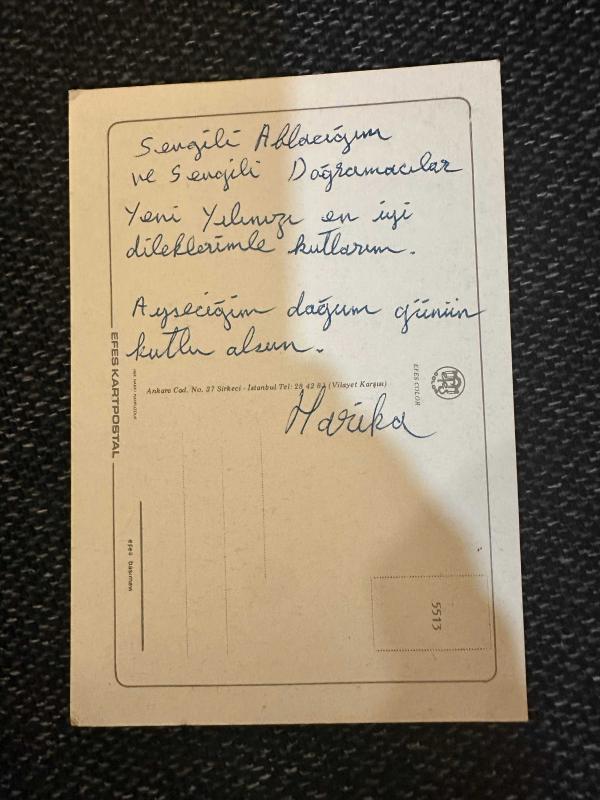 Sevgili Ablacığım
ve Sevgili Doğramacılar
Yeni Yılınızı en iyi
dileklerimle kutlarım.
Ayşeciğim doğum günün
kutlu olsun.
Ankara Cad. No. 37 Sirkeci - İstanbul Tel: 28 42 82 (Vilayet Karşısı)
Harika
EFES KARTPOSTAL
EFES COLOR
efes basımevi
5513